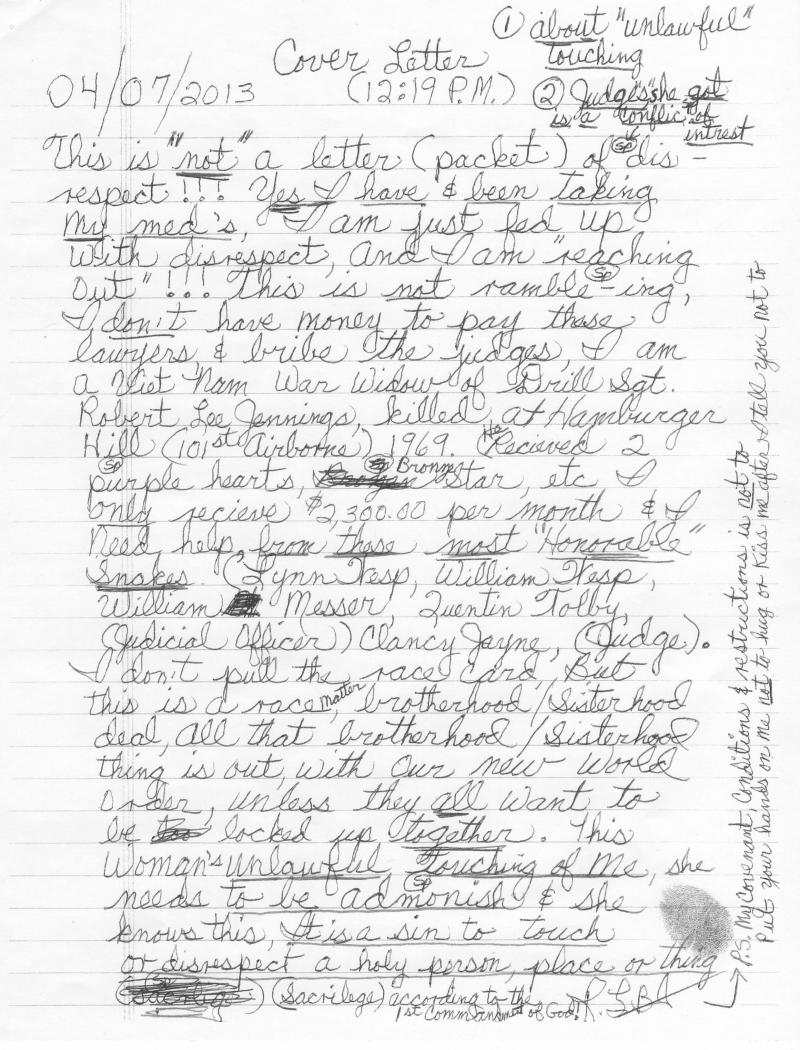 ① about "unlawful"
touching
Cover Letter
04/07/2013 (12:19 P.M.)
② Judge's "she got
is a conflic, of
sp
intrest
This is "not" a letter (packet) of dis-
sp
respect!!! Yes I have & been taking
my med's, I am just fed up
with disrespect, and I am "reaching
out"!!! This is not ramble-ing,
sp
I don't have money to pay these
lawyers, & bribe the judges, I am
a Viet Nam War Widow of Drill Sgt.
Robert Lee Jennings, killed, at Hamburger
Hill (101st Airborne) 1969. He Recieved 2
sp
purple hearts, Bronze Star, etc I
sp
only recieve $2,300.00 per month & I
need help, from these most "Honorable"
Snakes. (Lynn Tesp, William Tesp,
William Messer, Quentin Tolby,
(Judicial Officer)) Clancy Jayne, (Judge).
I don't pull the race card, But
this is a race matter, brotherhood/Sisterhood
deal, all that brotherhood/Sisterhood
thing is out, with our new world
order, unless they all want to
be locked up together. This
Woman's unlawful touching of Me, she
sp
needs to be admonish & she
knows this, It is a sin to touch
or disrespect a holy person, place or thing
sp
(Sacrilege) according to the
1st Commandment of God!
P.S. My Covenant, Conditions & restrictions is not to
Put your hands on me not to hug or Kiss me after I tell you not to